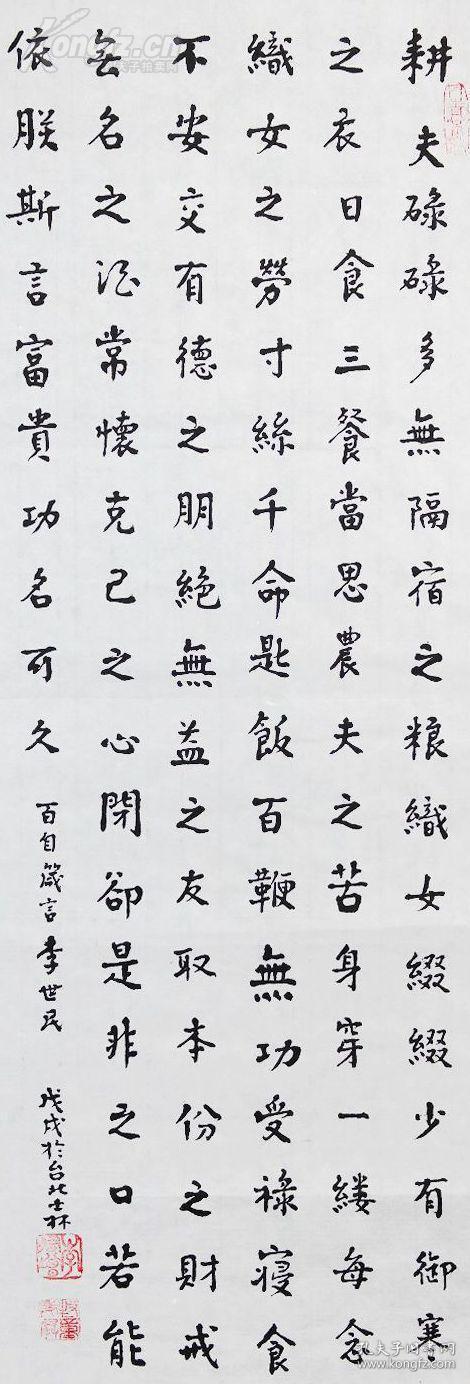 耕夫碌碌多無隔宿之粮織女綴綴少有御寒
之衣日食三餐當思農夫之苦身穿一縷每念
織女之勞寸絲千命匙飯百鞭無功受祿寝食
不安交有德之朋絕無益之友取本份之財戒
無名之酒常懷克己之心閉卻是非之口若能
依朕斯言富貴功名可久
百自箴言李世民
戊戌於台北士林
Kongfz.cn
孔夫子旧书网